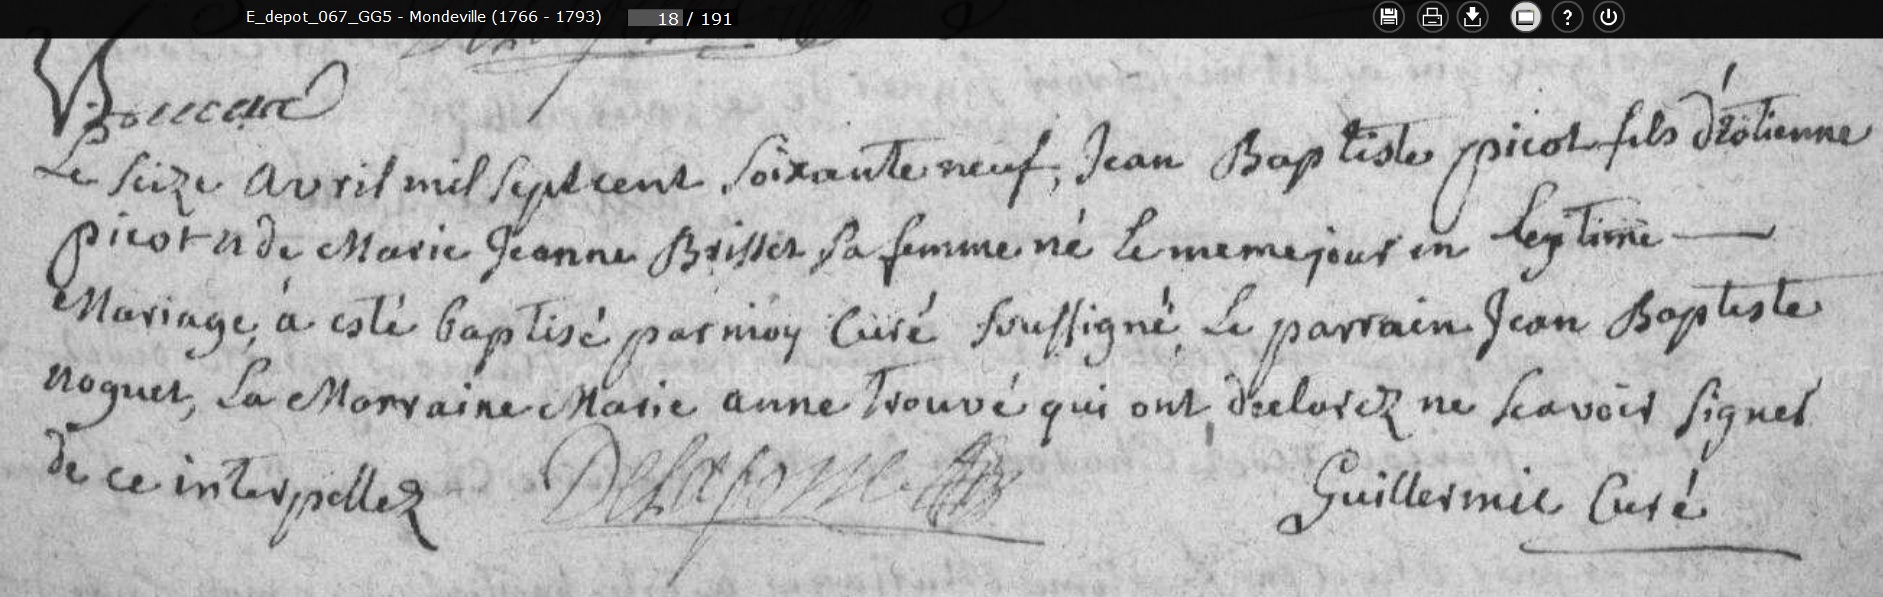 E_depot_067_GG5 - Mondeville (1766 - 1793) 18 / 191
Le seize Avril mil sept cent soixante neuf, Jean Baptiste picot fils d'étienne
picot et de Marie Jeanne Brisset sa femme né le meme jour en legtime
Mariage, a esté baptisé par moy Curé soussigné, Le parrain Jean Baptiste
noguet, La Marraine Marie anne Trouvé qui ont declarez ne scavoir signer
de ce interpellez Guillermic Curé